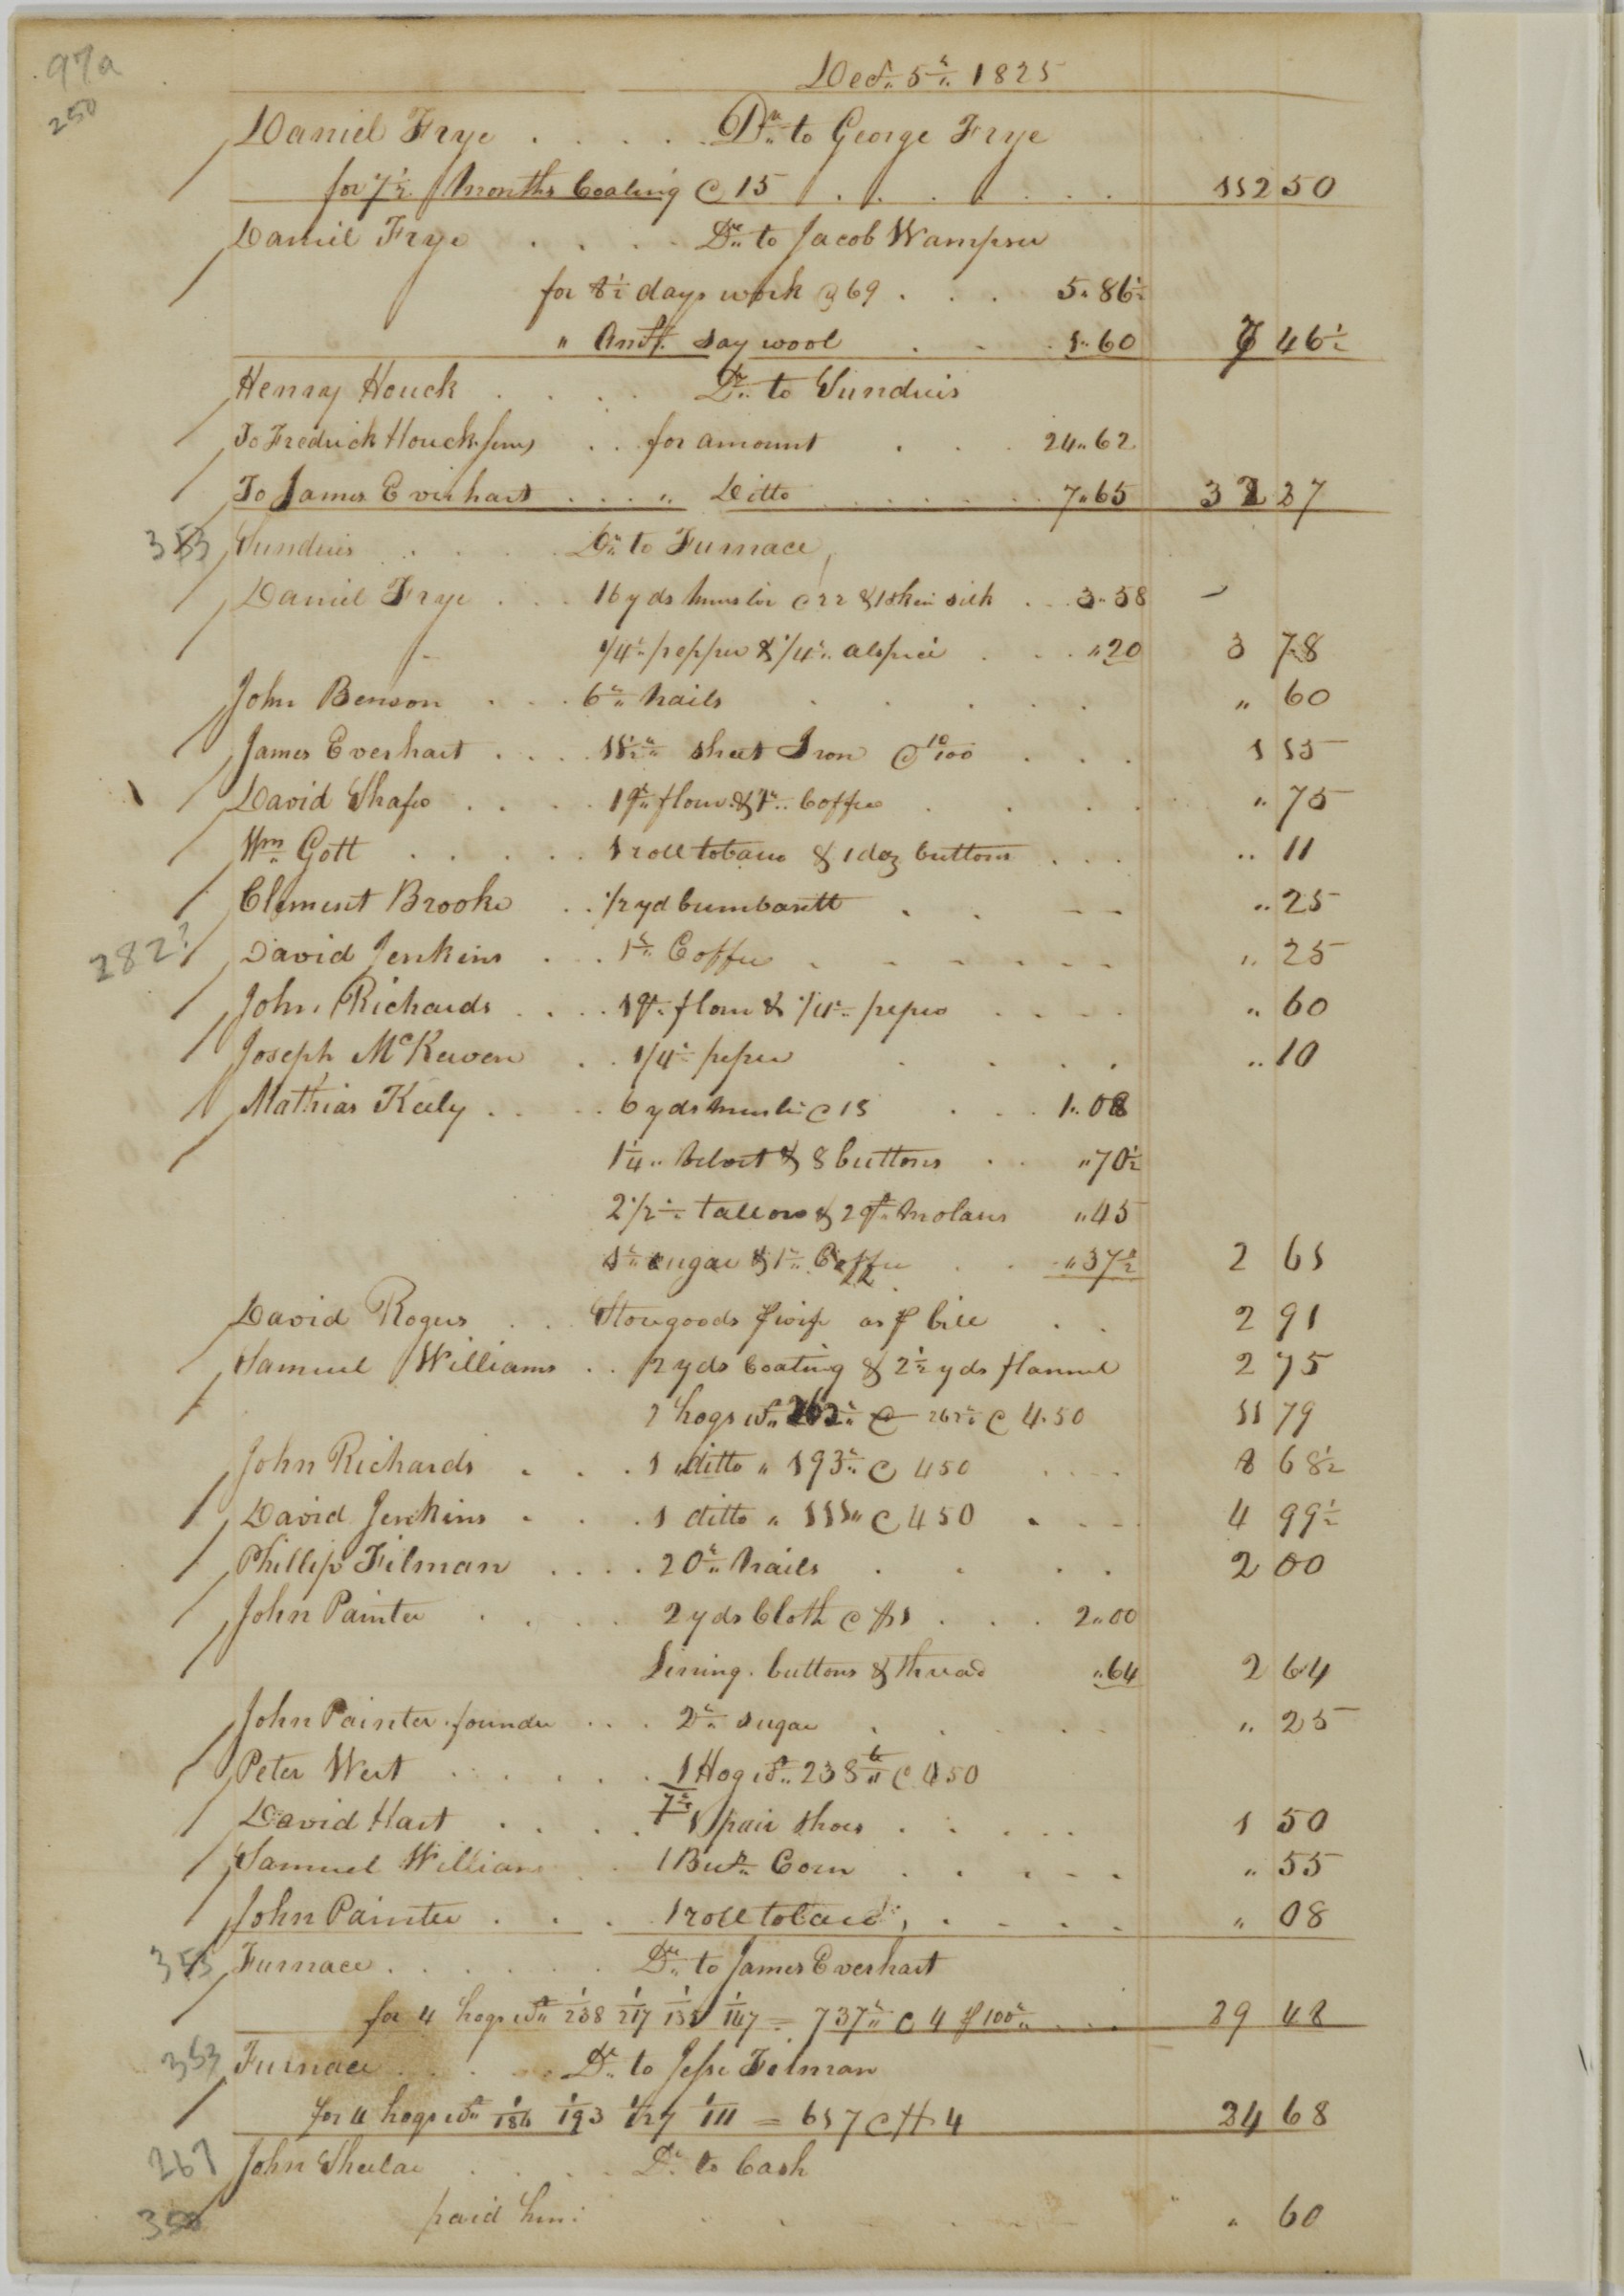 97a
250
Decr. 5th 1825
Daniel Frye . . . . Dr. to George Frye
for 7½ Months Coaling @ 15 . . . . . . . 112 50
Daniel Frye . . . . Dr. to Jacob Wampser
for 8½ days work @ 69 . . . 5. 86½
" Amt. say wool . . . 1. 60 7 46½
Henry Houck . . . . Dr. to Sundries
To Fredrick Houck . . for amount . . . 24.. 62
To James Everhart . . . . " Ditto . . . . . . 7.. 65 32 27
353 Sundries . . . . Dr. to Furnace
Daniel Frye . . . 16 yds Muslin @ 22 & 1 skein silk . . 3.. 58
1/4 lb pepper & 1/4 lb alspice . . . .. 20 3 78
John Benson . . . 6 lb Nails . . . . . " 60
James Everhart . . . . 11½ lb sheet Iron @ 10/100 . . . 1 15
David Shafe . . . . 1 qr flour & 1 lb Coffee . . . . " 75
Wm Gott . . . . . 1 roll tobacco & 1 doz buttons . . . .. 11
Clement Brooke . . 1/2 yd bumbasett . . - - .. 25
282? David Jenkins . . . 1 lb Coffee . - - - - - " 25
John Richards . . . . 1 qr flour & 1/4 lb peper . . . . .. 60
Joseph McKewen . . 1/4 lb peper . . . . .. 10
Mathias Kealy . . . . 6 yds Muslin @ 18 . . . 1. 08
1¼ .. Velvet & 8 buttons . . " 70½
2 1/2 lb tallow & 2 qt Molases " 45
1 lb sugar & 1 lb Coffee . . " 37½ 2 61
David Rogers . . . Storegoods pr wife as pr bill . . 2 91
Samuel Williams . . 2 yds Coating & 2½ yds flannel 2 75
2 hogs wt. 262 lb @ 262 lb @ 4.50 11 79
John Richards . . . 1 ditto " 193 lb @ 450 . . . . 8 68½
David Jenkins . . . 1 ditto " 111 " @ 450 . . . 4 99½
Phillip Filman . . . . 20 lb Nails . . . . 2 00
John Painter . . . . 2 yds Cloth @ $1 . . . 2.. 00
Lining. buttons & thread .. 64 2 64
John Painter founder . . . 2 lb sugar . . . . " 25
Peter Wert . . . . . 1 Hog wt. 238 lb @ 450
David Hart . . . . 1 pair shoes . . . . . 1 50
Samuel William . 1 Bush Corn . . . . . " 55
John Painter . . . 1 roll tobacco . . . . " 08
353 Furnace . . . . . . Dr. to James Everhart
for 4 hogs wt 1/238 1/217 1/135 1/147 = 737 lb @ 4 pr 100 lb . . . 29 48
353 Furnace . . . . Dr. to Jesse Filman
for 4 hogs wt 1/186 1/193 1/127 1/111 = 617 @ $ 4 24 68
267 John Sheelar . . . . Dr. to Cash
350 paid him . . . . . . " 60